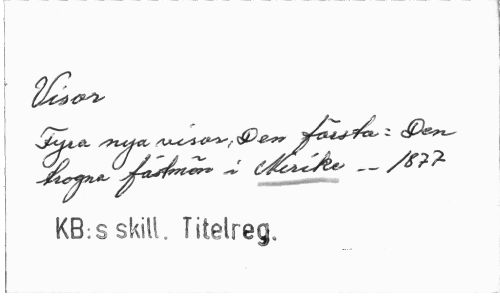 Visor
Fyra nya visor, Den första: Den
trogna fästmön i Nerike -- 1877
KB:s skill. Titelreg.